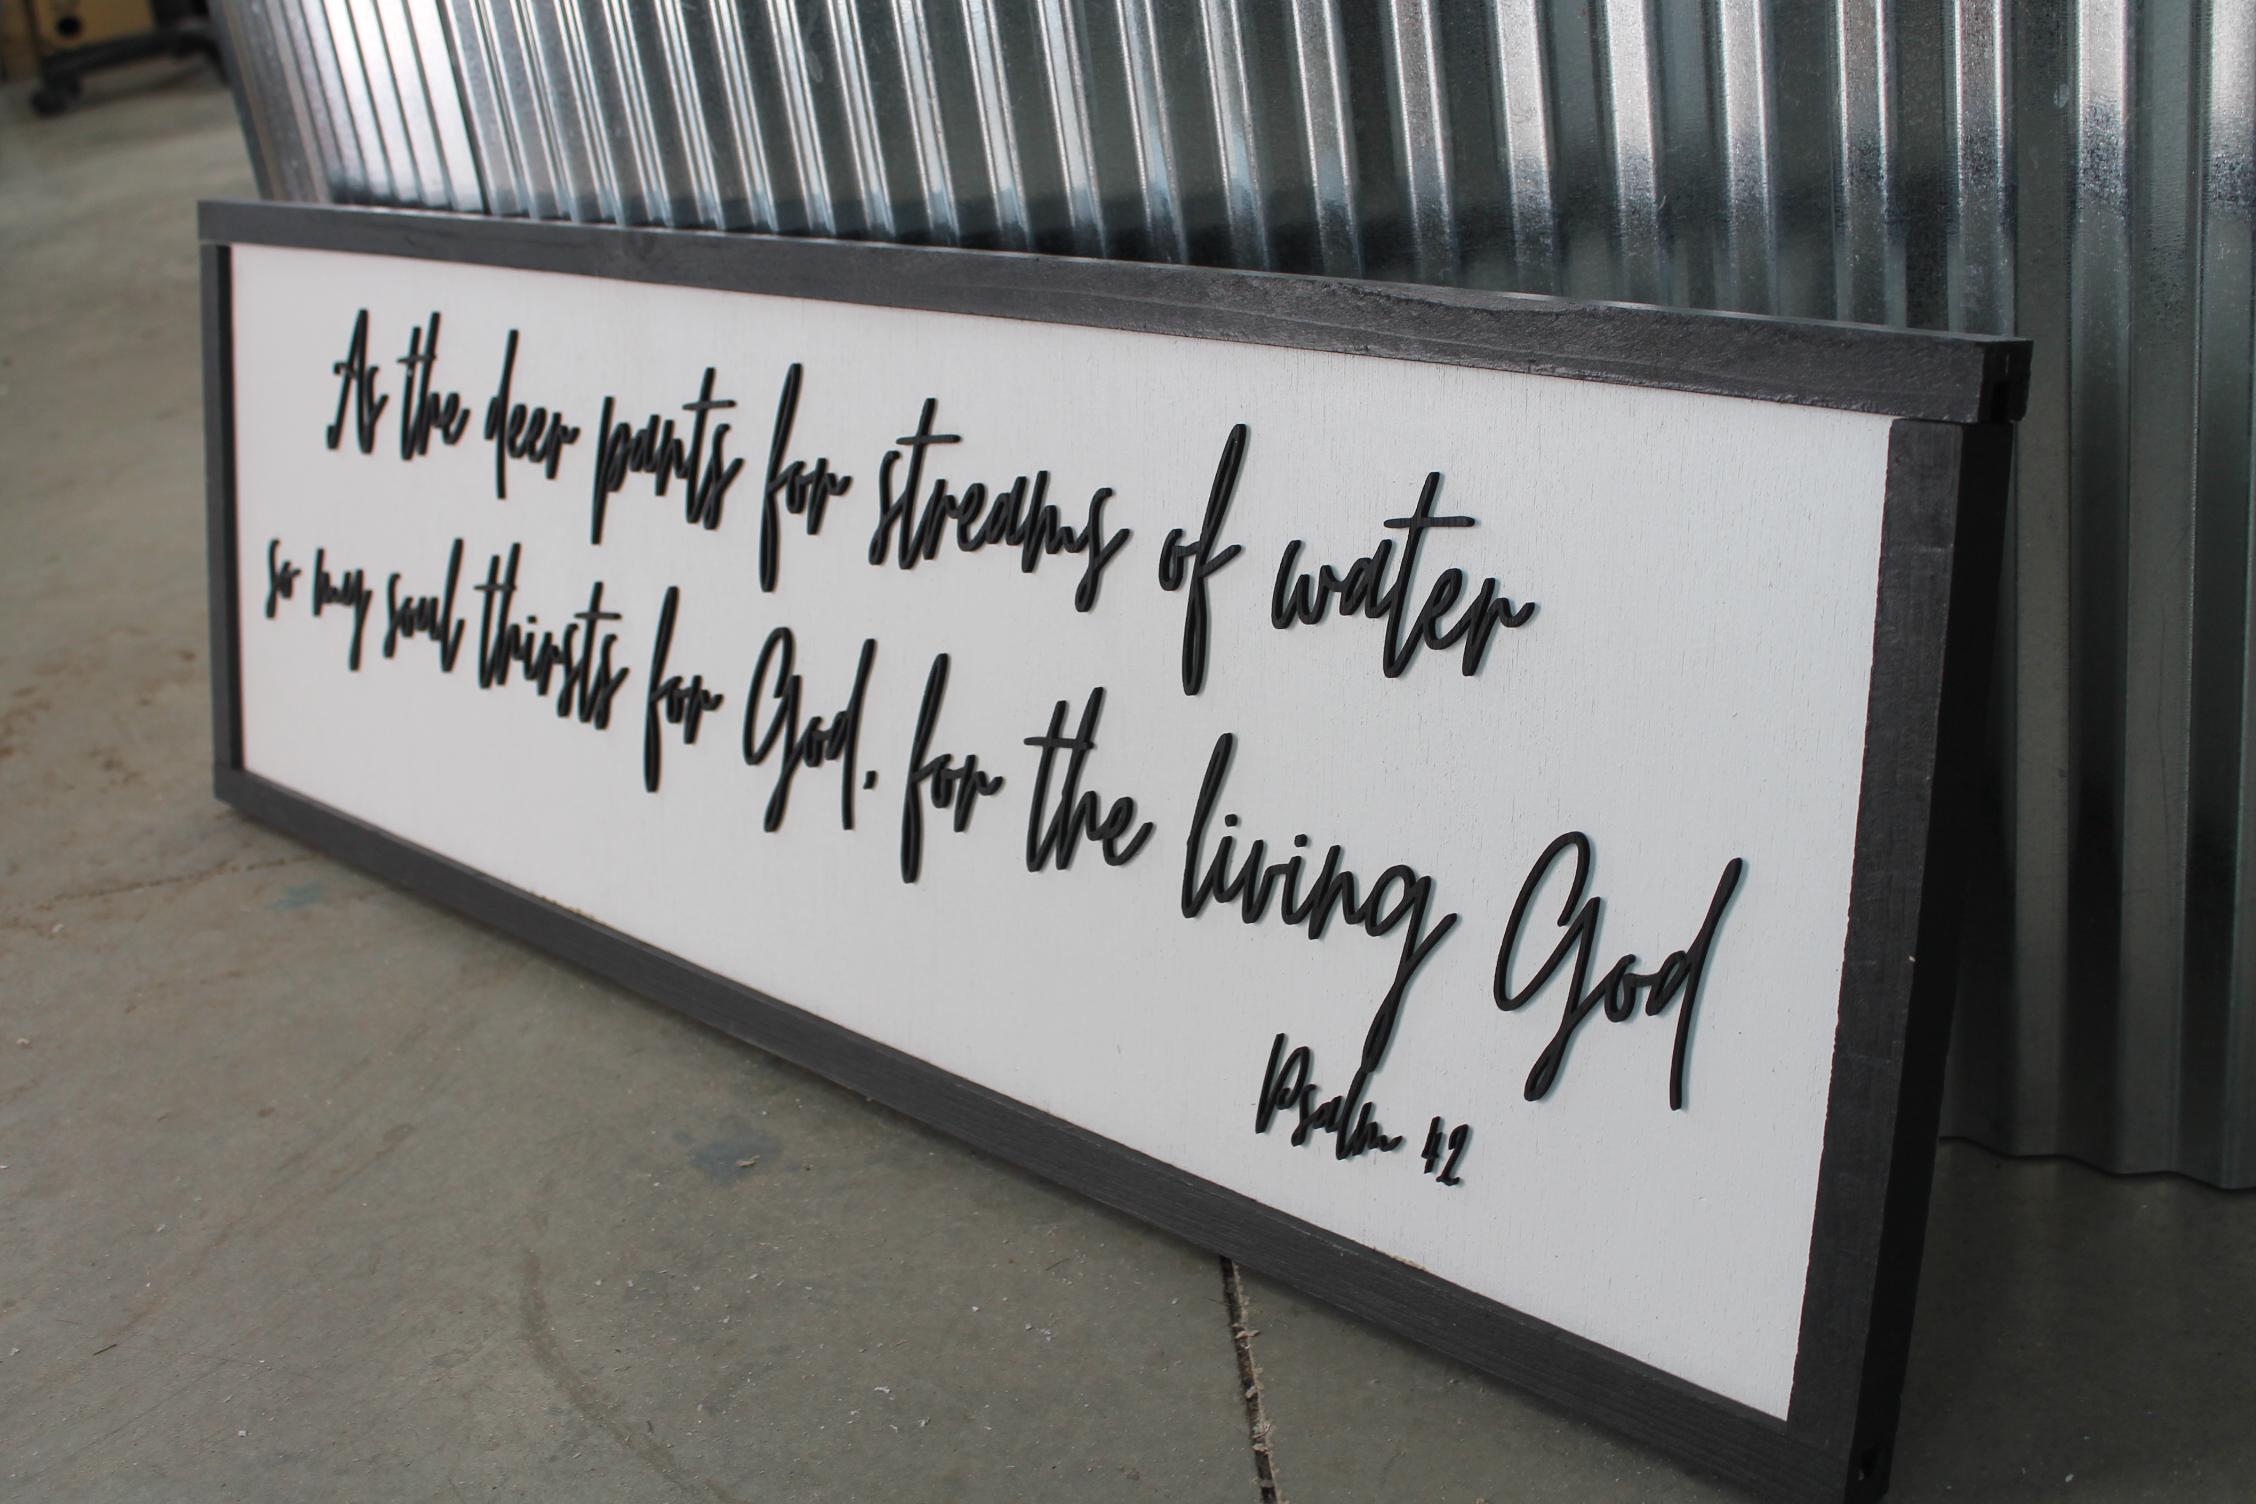 As the deer pants for streams of water
so my soul thirsts for God, for the living God
Psalm 42